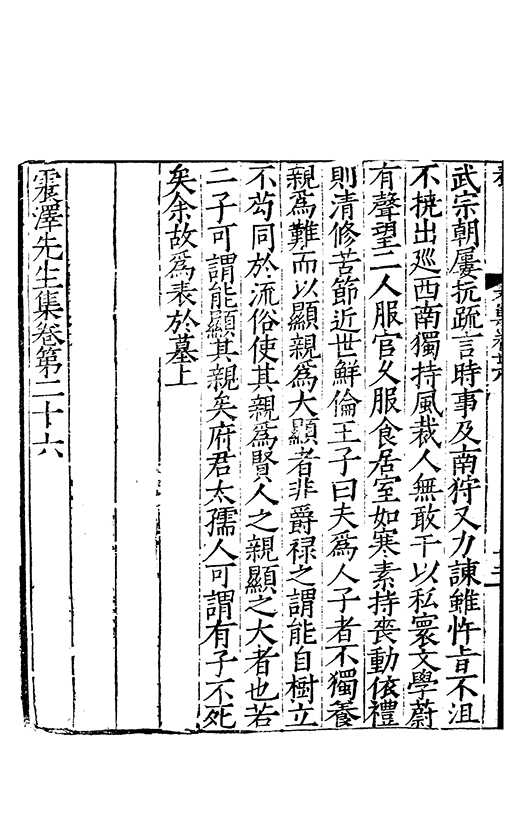 武宗朝屢抗疏言時事及南狩又力諫雖忤旨不沮
不撓出廵西南獨持風裁人無敢干以私寰文學蔚
有聲望二人服官久服食居室如寒素持喪動依禮
則清修苦節近世鮮倫王子曰夫爲人子者不獨養
親爲難而以顯親爲大顯者非爵禄之謂能自樹立
不苟同於流俗使其親爲賢人之親顯之大者也若
二子可謂能顯其親矣府君太孺人可謂有子不死
矣余故爲表於墓上
震澤先生集卷第二十六